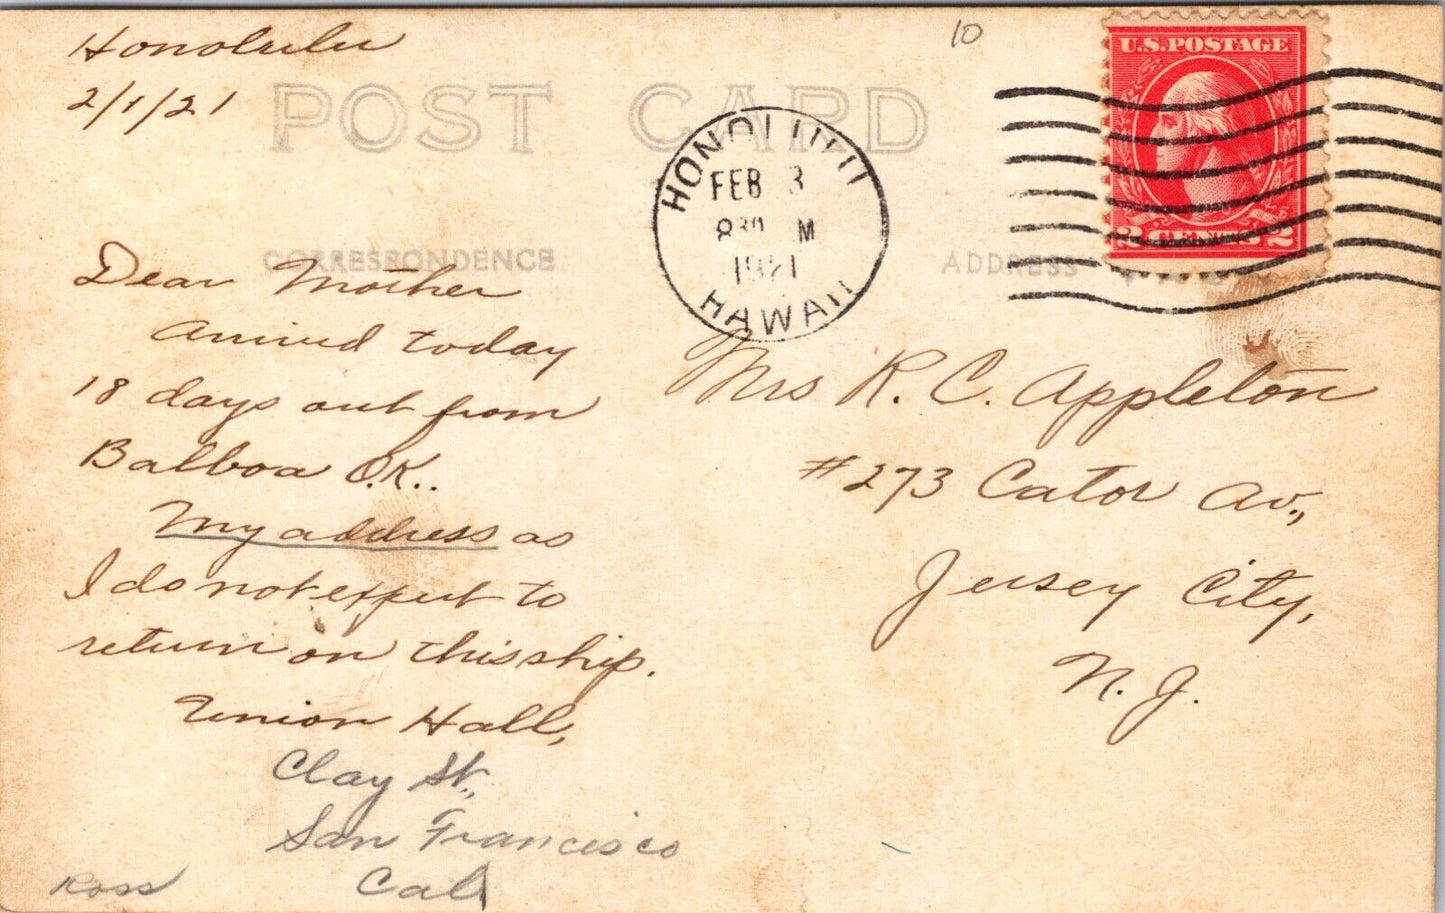 Honolulu
2/1/21
10
POST CARD
U.S. POSTAGE
2 CENTS 2
HONOLULU
FEB 3
830 M
1921
HAWAII
CORRESPONDENCE
ADDRESS
Dear Mother
Arrived today
18 days out from
Balboa O.K..
My address as
I do not expect to
return on this ship.
Union Hall,
Clay St.,
San Francisco
Cal
Ross
Mrs R. C. Appleton
#273 Cator Av.,
Jersey City,
N. J.